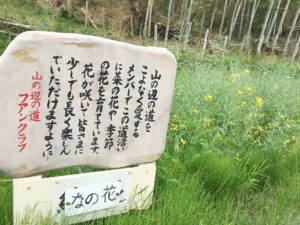 山の辺の道を
こよなく愛する
メンバーで、この道沿い
に菜の花や季節
の花を育てています。
花が咲いて皆さまに
少しでも長く楽しん
でいただけますように
山の辺の道
フアンクラブ
なの花